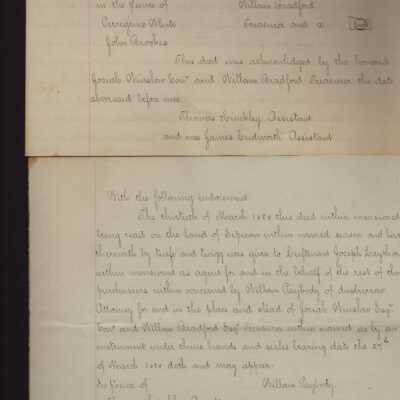 in the sence of William Bradford
Perregrine White Treasurer and a
John Brookes
This deed was acknowledged by the honored
Josiah Winslow Gov and William Bradford Treasurer the date
aforesaid before mee
Thomas Hinckley Assistant
and mee James Cudworth Assistant
With the following indorsement
The thirtieth of March 1680 this deed within mensioned
being read on the land of Sepecan within named season and
therewith by turfe and twigg was give to Leiftenant Joseph
within mensioned as agent for and in the behalf of the rest of the
purchasers within concerned by William Paybody of duxborow
Attorney for and in the place and stead of Josiah Winslow Esqr
Gov and William Bradford Esqr Treasurer within named as by an
instrument under those hands and seales bearing date the 27th
of March 1680 doth and may appear
In sence of William Paybody